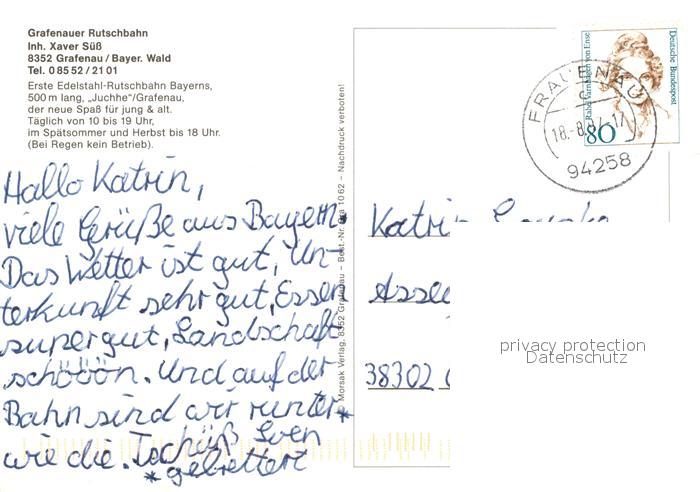 Grafenauer Rutschbahn
Inh. Xaver Süß
8352 Grafenau / Bayer. Wald
Tel. 0 85 52 / 21 01
Erste Edelstahl-Rutschbahn Bayerns,
500 m lang, „Juchhe“/Grafenau,
der neue Spaß für jung & alt.
Täglich von 10 bis 19 Uhr,
im Spätsommer und Herbst bis 18 Uhr.
(Bei Regen kein Betrieb).
Hallo Katrin,
viele Grüße aus Bayern.
Das Wetter ist gut, Un-
terkunft sehr gut, Essen
supergut, Landschaft
schööön. Und auf der
Bahn sind wir runter*
wie die. Tschüß Sven
*gebrettert
© Morsak Verlag, 8352 Grafenau – Best.-Nr. 1062 – Nachdruck verboten!
Rahel Varnhagen von Ense
Deutsche Bundespost
80
FRAUENAU
94258
Katrin
38302
privacy protection
Datenschutz